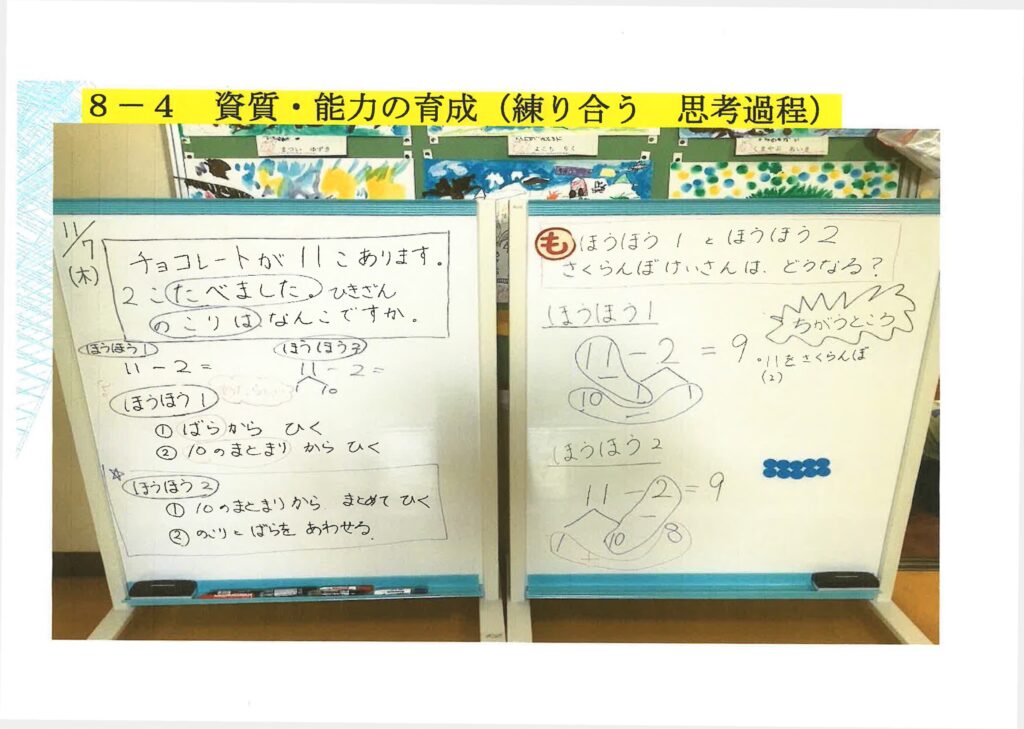 8－4　資質・能力の育成（練り合う　思考過程）
まつい　ゆずき
よこち　りく
11/7
(木)
チョコレートが11こあります。
2こたべました。ひきざん
のこりはなんこですか。
ほうほう1
ほうほう2
11－2＝
11－2＝
1 10
ほうほう1
①ばらから ひく
②10のまとまりからひく
ほうほう2
①10のまとまりから まとめてひく
②のこりとばらを あわせる。
も ほうほう1とほうほう2
さくらんぼけいさんは、どうなる?
ほうほう1
ちがうところ
11－2＝9
・11をさくらんぼ
(2)
10 1 1
ほうほう2
11－2＝9
1 10 8
＋